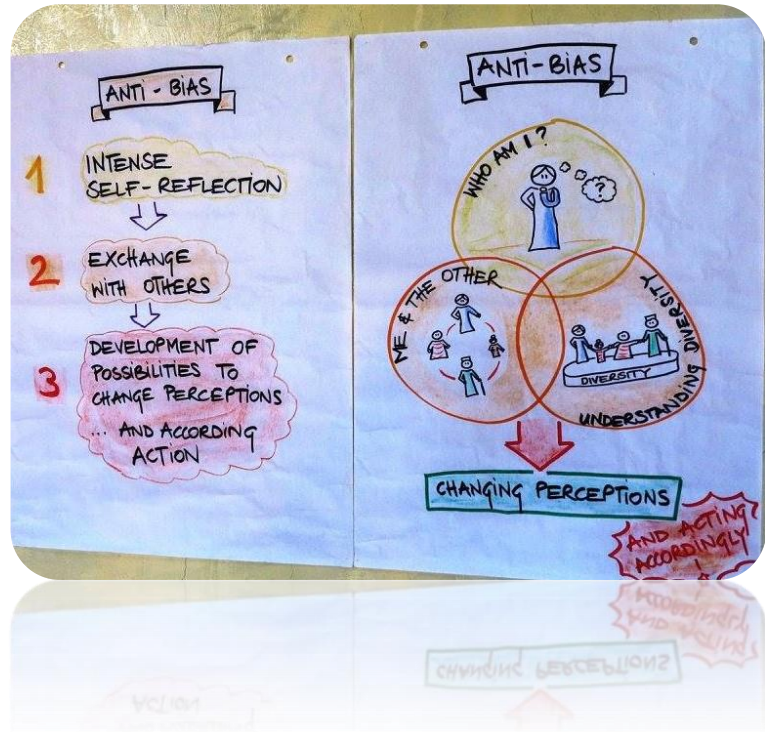 ANTI - BiAS
1
INTENSE
SELF-REFLECTION
2
EXCHANGE
WITH OTHERS
3
DEVELOPMENT OF
POSSIBILITIES TO
CHANGE PERCEPTIONS
... AND ACCORDING
ACTION
ANTi-BiAS
WHO AM I?
?
ME & THE OTHER
UNDERSTANDING DIVERSITY
DIVERSITY
CHANGiNG PERCEPTiONS
AND ACTING
ACCORDINGLY
!